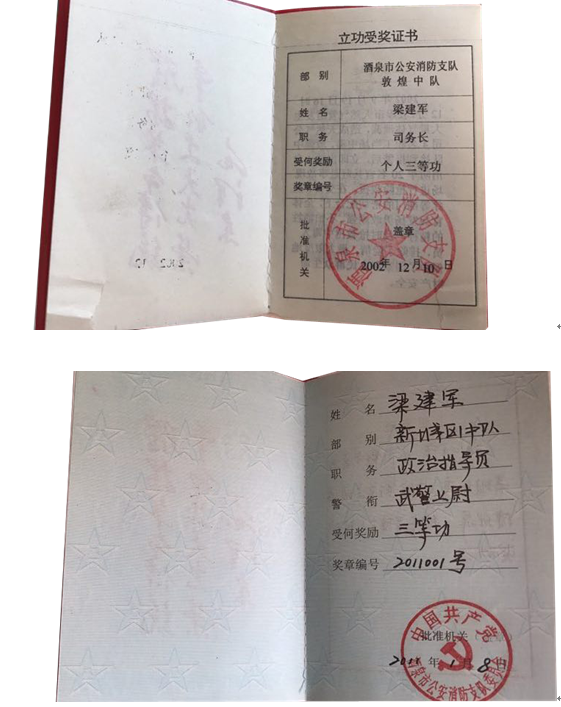 立功受奖证书
部 别 酒泉市公安消防支队
敦煌中队
姓 名 梁建军
职 务 司务长
受何奖励 个人三等功
奖章编号
批准机关 盖章
酒泉市公安消防支队
2002年 12月10日
2002 12
姓 名 梁建军
部 别 新城区中队
职 务 政治指导员
警 衔 武警上尉
受何奖励 三等功
奖章编号 2011001号
中国共产党
批准机关
2011年1月8日
酒泉市公安消防支队委员会